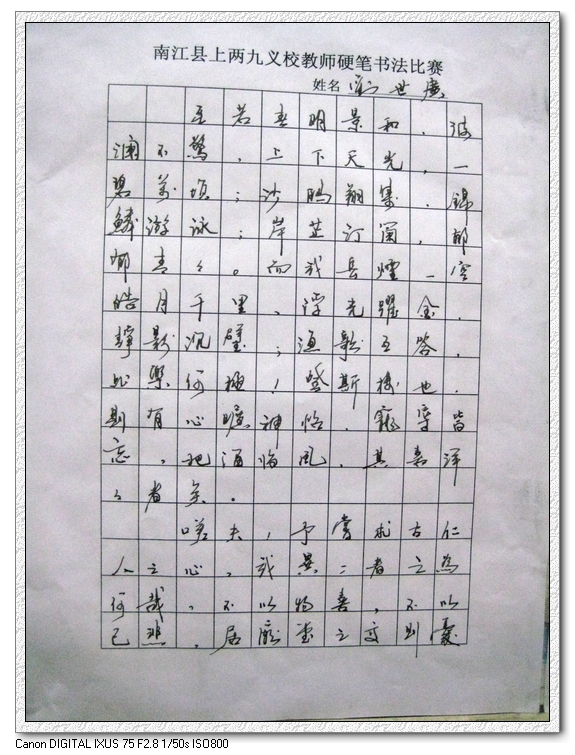 南江县上两九义校教师硬笔书法比赛
姓名 劉世廣
至若春明景和，波
澜不驚，上下天光，一
碧萬頃；沙鸥翔集，錦
鱗游泳；岸芷汀蘭，郁
郁青々。而或長煙一空
皓月千里，浮光躍金，
静影沉璧；漁歌互答，
此樂何極！登斯樓也，
則有心曠神怡，寵辱皆
忘，把酒临風，其喜洋
々者矣。
嗟夫，予嘗求古仁
人之心，或異二者之為
何哉，不以物喜，不以
己悲，居廟堂之高則憂
Canon DIGITAL IXUS 75 F2.8 1/50s ISO800